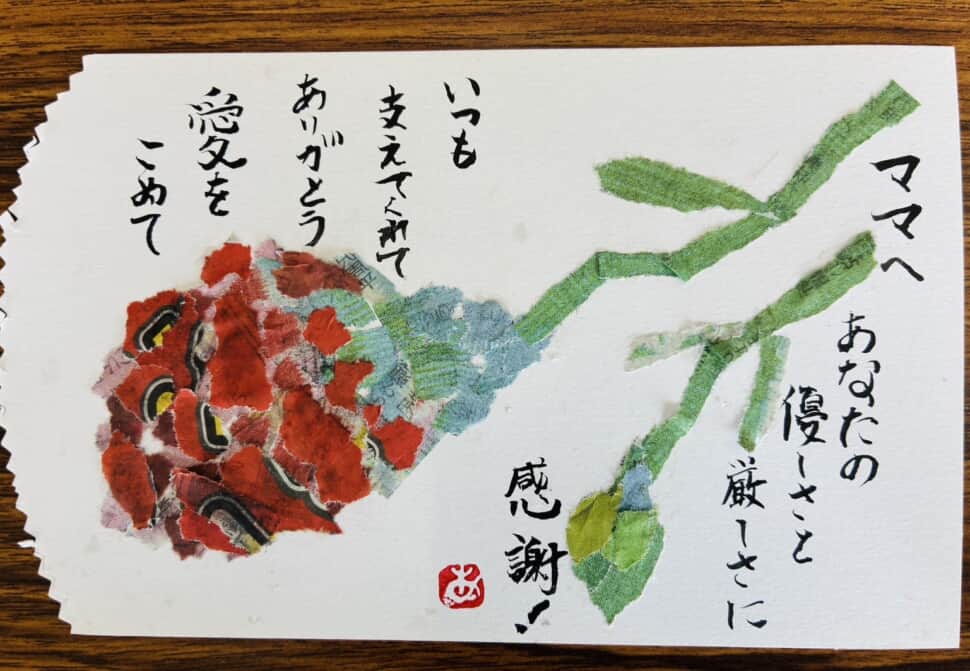 ママへ
あなたの
優しさと
厳しさに
感謝！
いつも
支えてくれて
ありがとう
愛を
こめて
あ